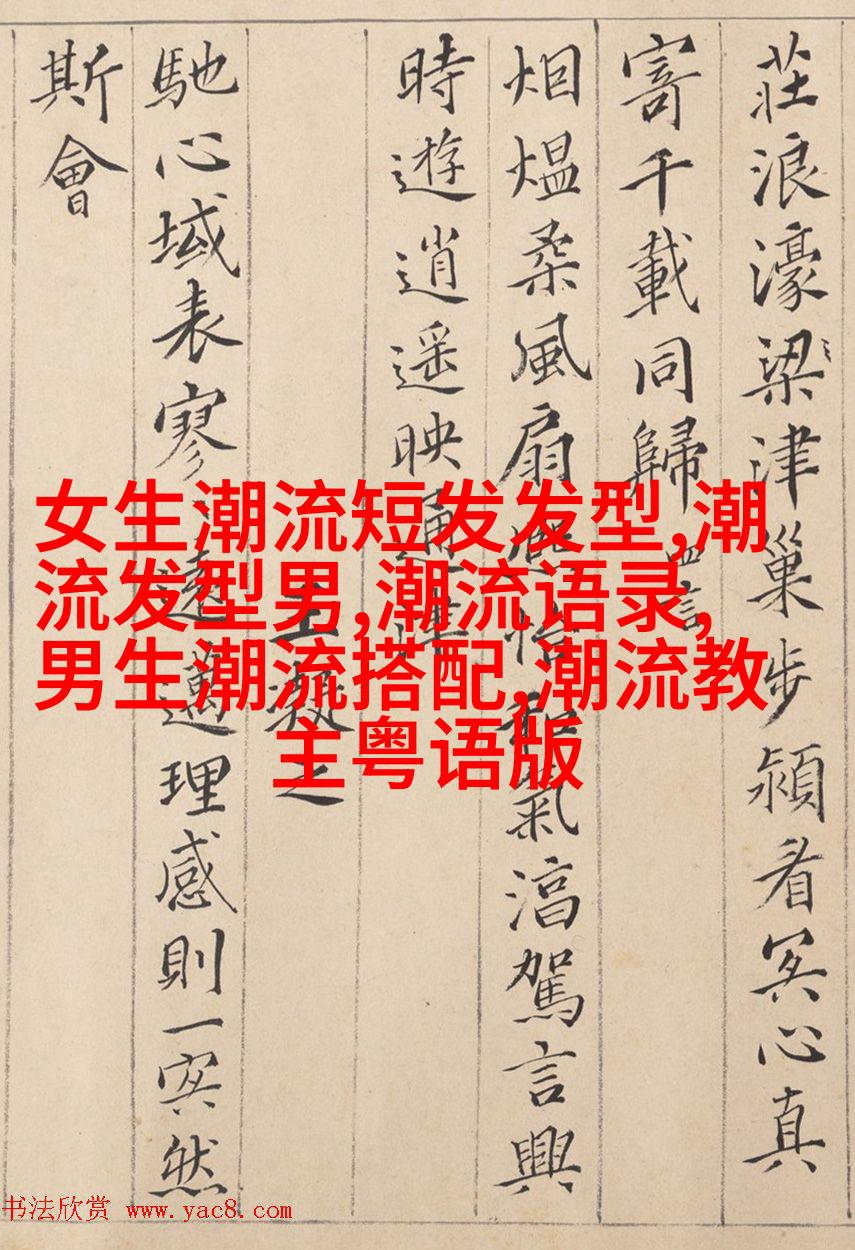 莊浪濠梁津巢步潁看冥心真
寄千載同歸 四言
烟煴柔風扇熙怡和氣淳駕言興
時遊逍遥映通津
王凝之
馳心域表寥遠邁理感則一冥然
斯會
女生潮流短发发型,潮
流发型男,潮流语录,
男生潮流搭配,潮流教
主粤语版
书法欣赏 www.yac8.com